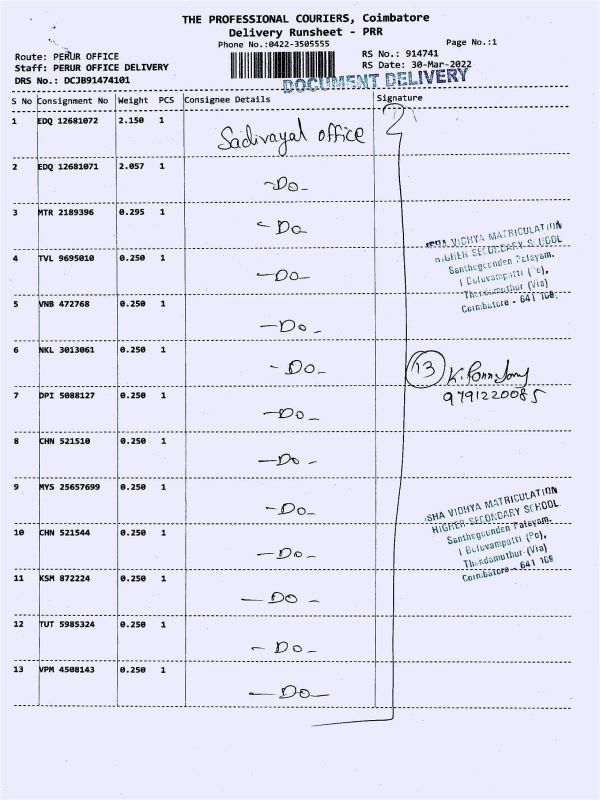 THE PROFESSIONAL COURIERS, Coimbatore
Delivery Runsheet - PRR
Phone No.:0422-3505555
Page No.:1
Route: PERUR OFFICE
RS No.: 914741
Staff: PERUR OFFICE DELIVERY
RS Date: 30-Mar-2022
DRS No.: DCJB91474101
DOCUMENT DELIVERY
S No Consignment No Weight PCS Consignee Details Signature
1 EDQ 12681072 2.150 1 Sadivayal office
2 EDQ 12681071 2.057 1 -Do-
3 MTR 2189396 0.295 1 -Do
4 TVL 9695010 0.250 1 -Do-
5 VNB 472768 0.250 1 -Do-
6 NKL 3013061 0.250 1 -Do-
7 DPI 5088127 0.250 1 -Do-
8 CHN 521510 0.250 1 -Do-
9 MYS 25657699 0.250 1 -Do-
10 CHN 521544 0.250 1 -Do-
11 KSM 872224 0.250 1 -Do-
12 TUT 5985324 0.250 1 -Do-
13 VPM 4508143 0.250 1 -Do-
ISHA VIDHYA MATRICULATION
HIGHER SECONDARY SCHOOL
Santhegounden Palayam,
Boluvampatti (Po),
Thondamuthur (Via)
Coimbatore - 641 109
13
9791220085
ISHA VIDHYA MATRICULATION
HIGHER SECONDARY SCHOOL
Santhegounden Palayam,
Boluvampatti (Po),
Thondamuthur (Via)
Coimbatore - 641 109